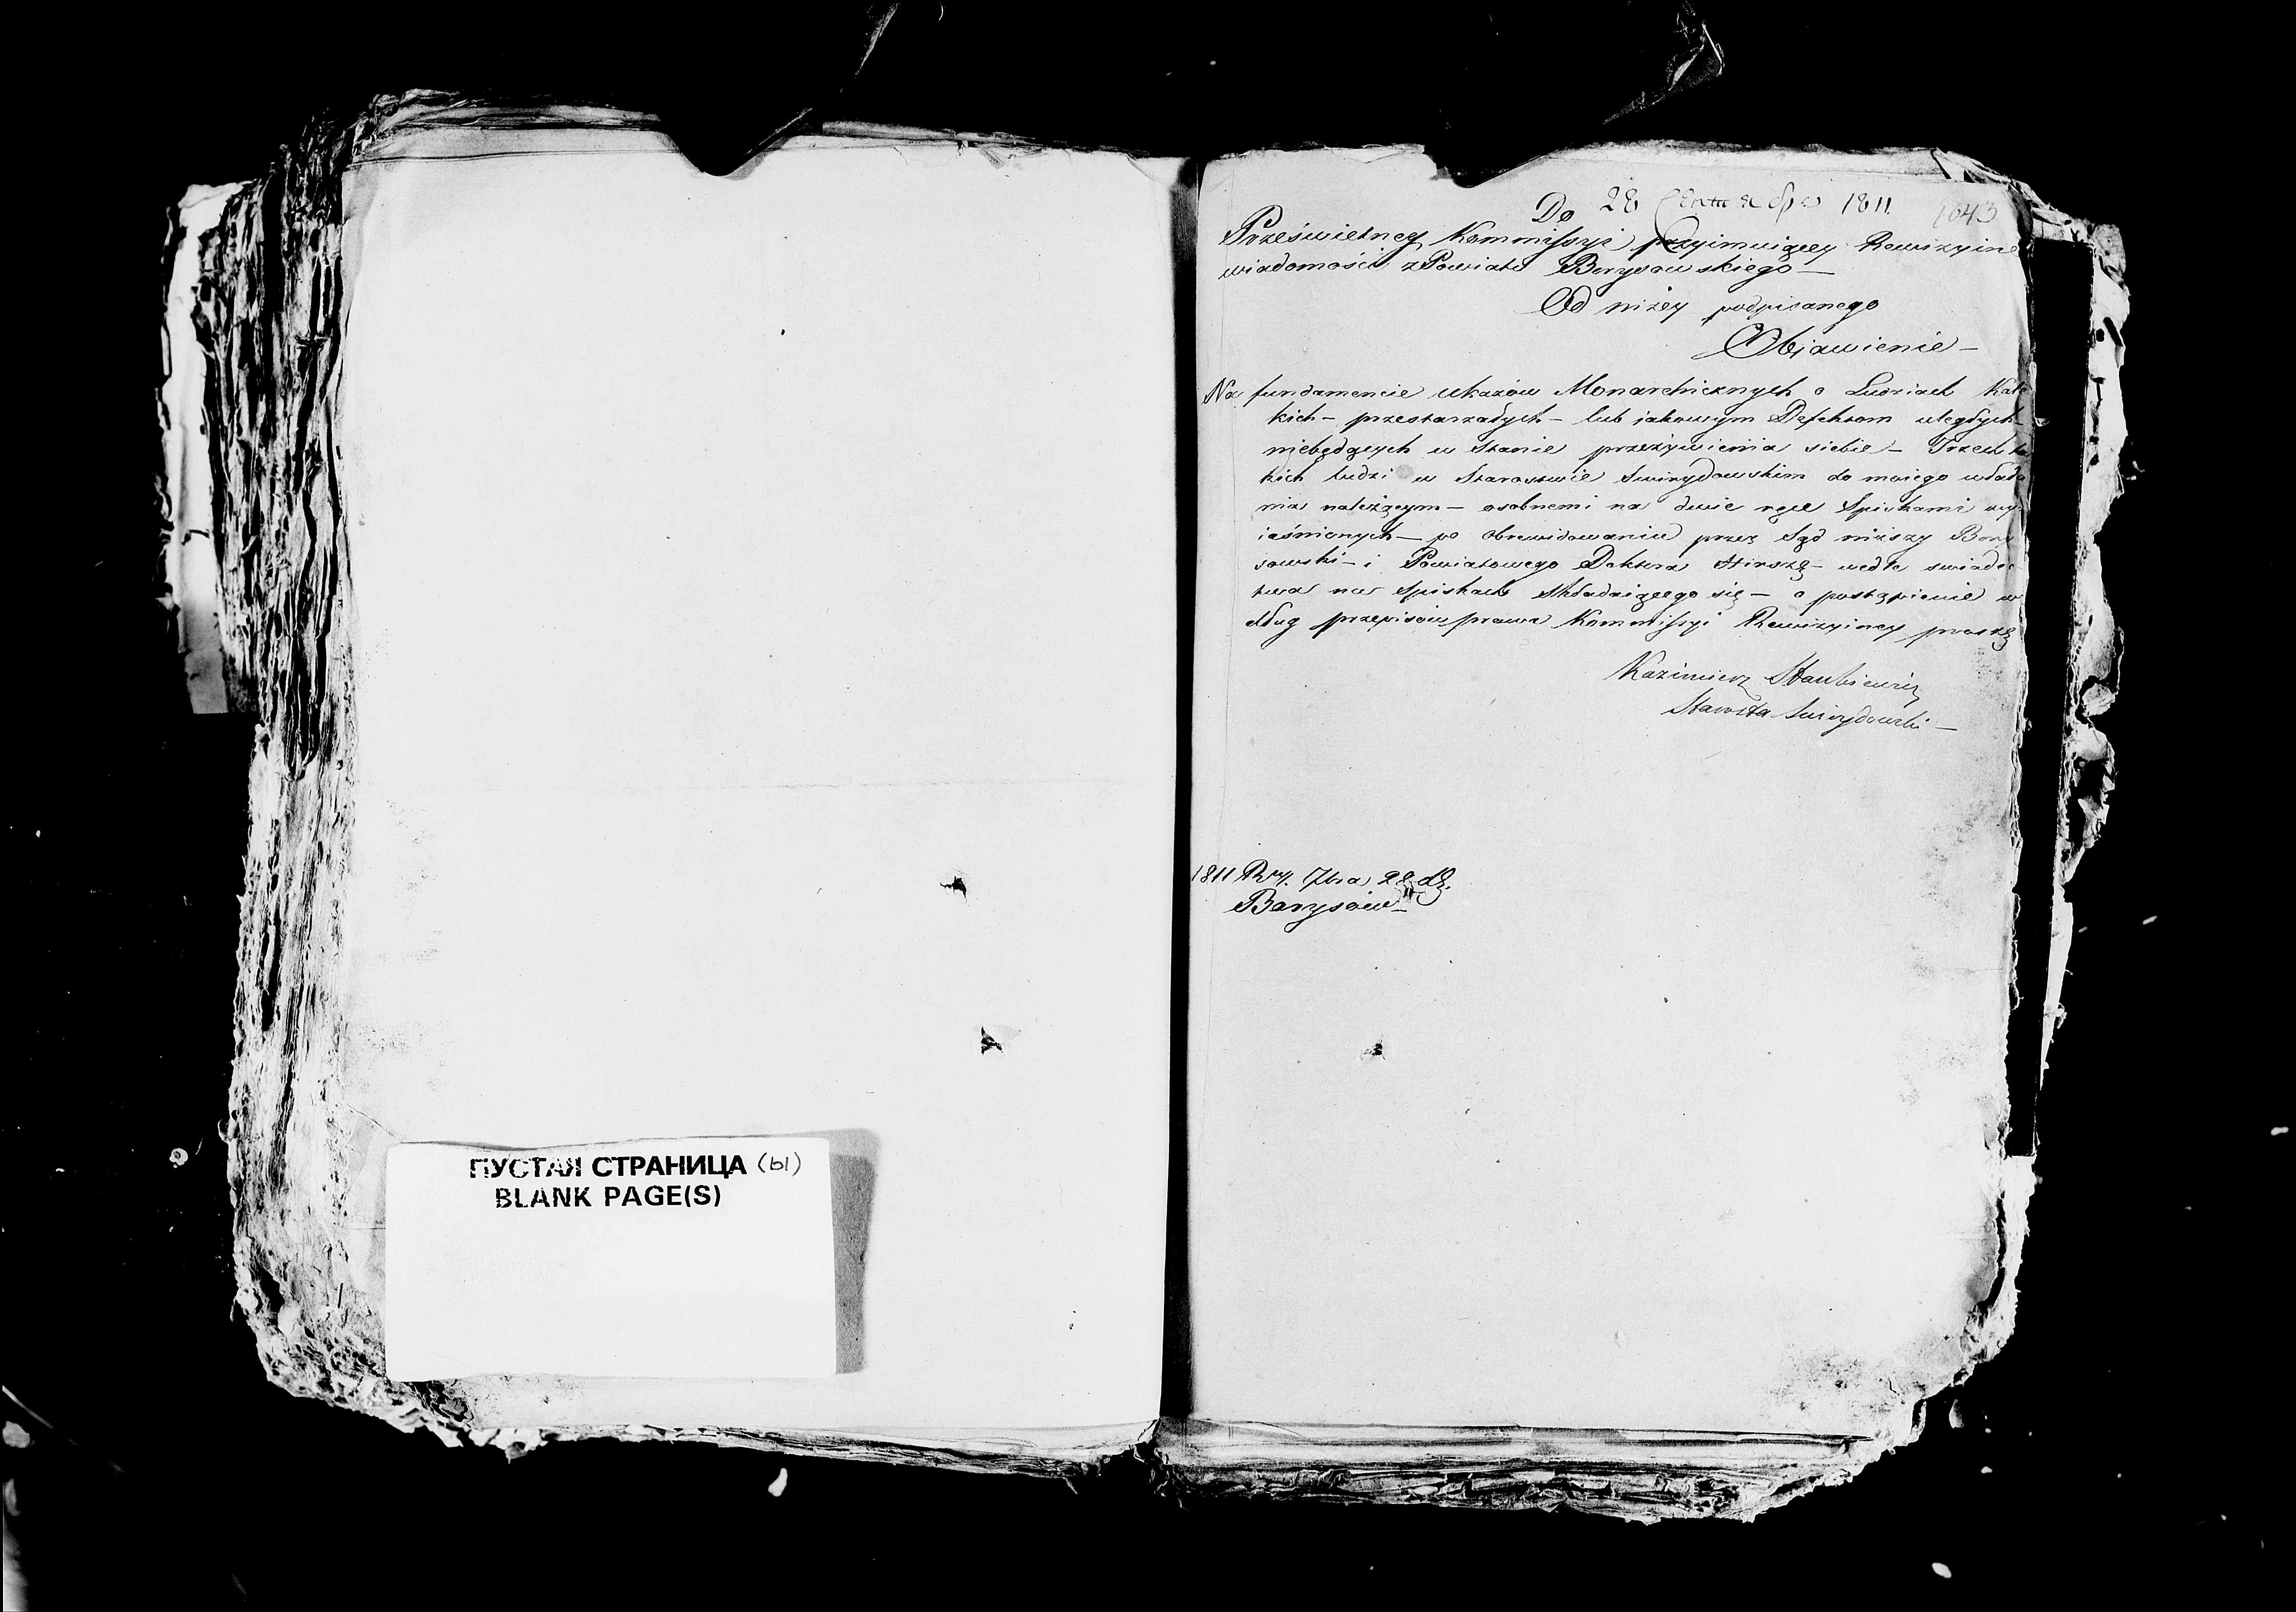 ПУСТАЯ СТРАНИЦА (ы)
BLANK PAGE(S)
28 Сентября 1811
1643
Do
Prześwietney Kommissyi przyimuiącey Rewizyine
wiadomości z Powiatu Borysowskiego —
Od niżey podpisanego
Obiawienie —
Na fundamencie ukazów Monarchicznych o Ludziach Kale
kich — przestarzałych — lub iakowym Defektom uległych
niebędących w stanie przeżywienia siebie — Trzech ta
kich ludzi w Starostwie Swirydowskim do moiego włada
nia należącym — osobnemi na dwie ręce Spiskami wy
iaśnionych — po obrewidowaniu przez Sąd niższy Bory
sowski — i Powiatowego Doktora Hirszę — wedle swiadec
twa na spiskach Składaiącego się — o postąpienie we
dług przepisów prawa Kommissyi Rewizyiney proszę
Kazimierz Stankiewicz
Starosta Swirydowski —
1811 Rku. 7bra 28 d.
Borysów —